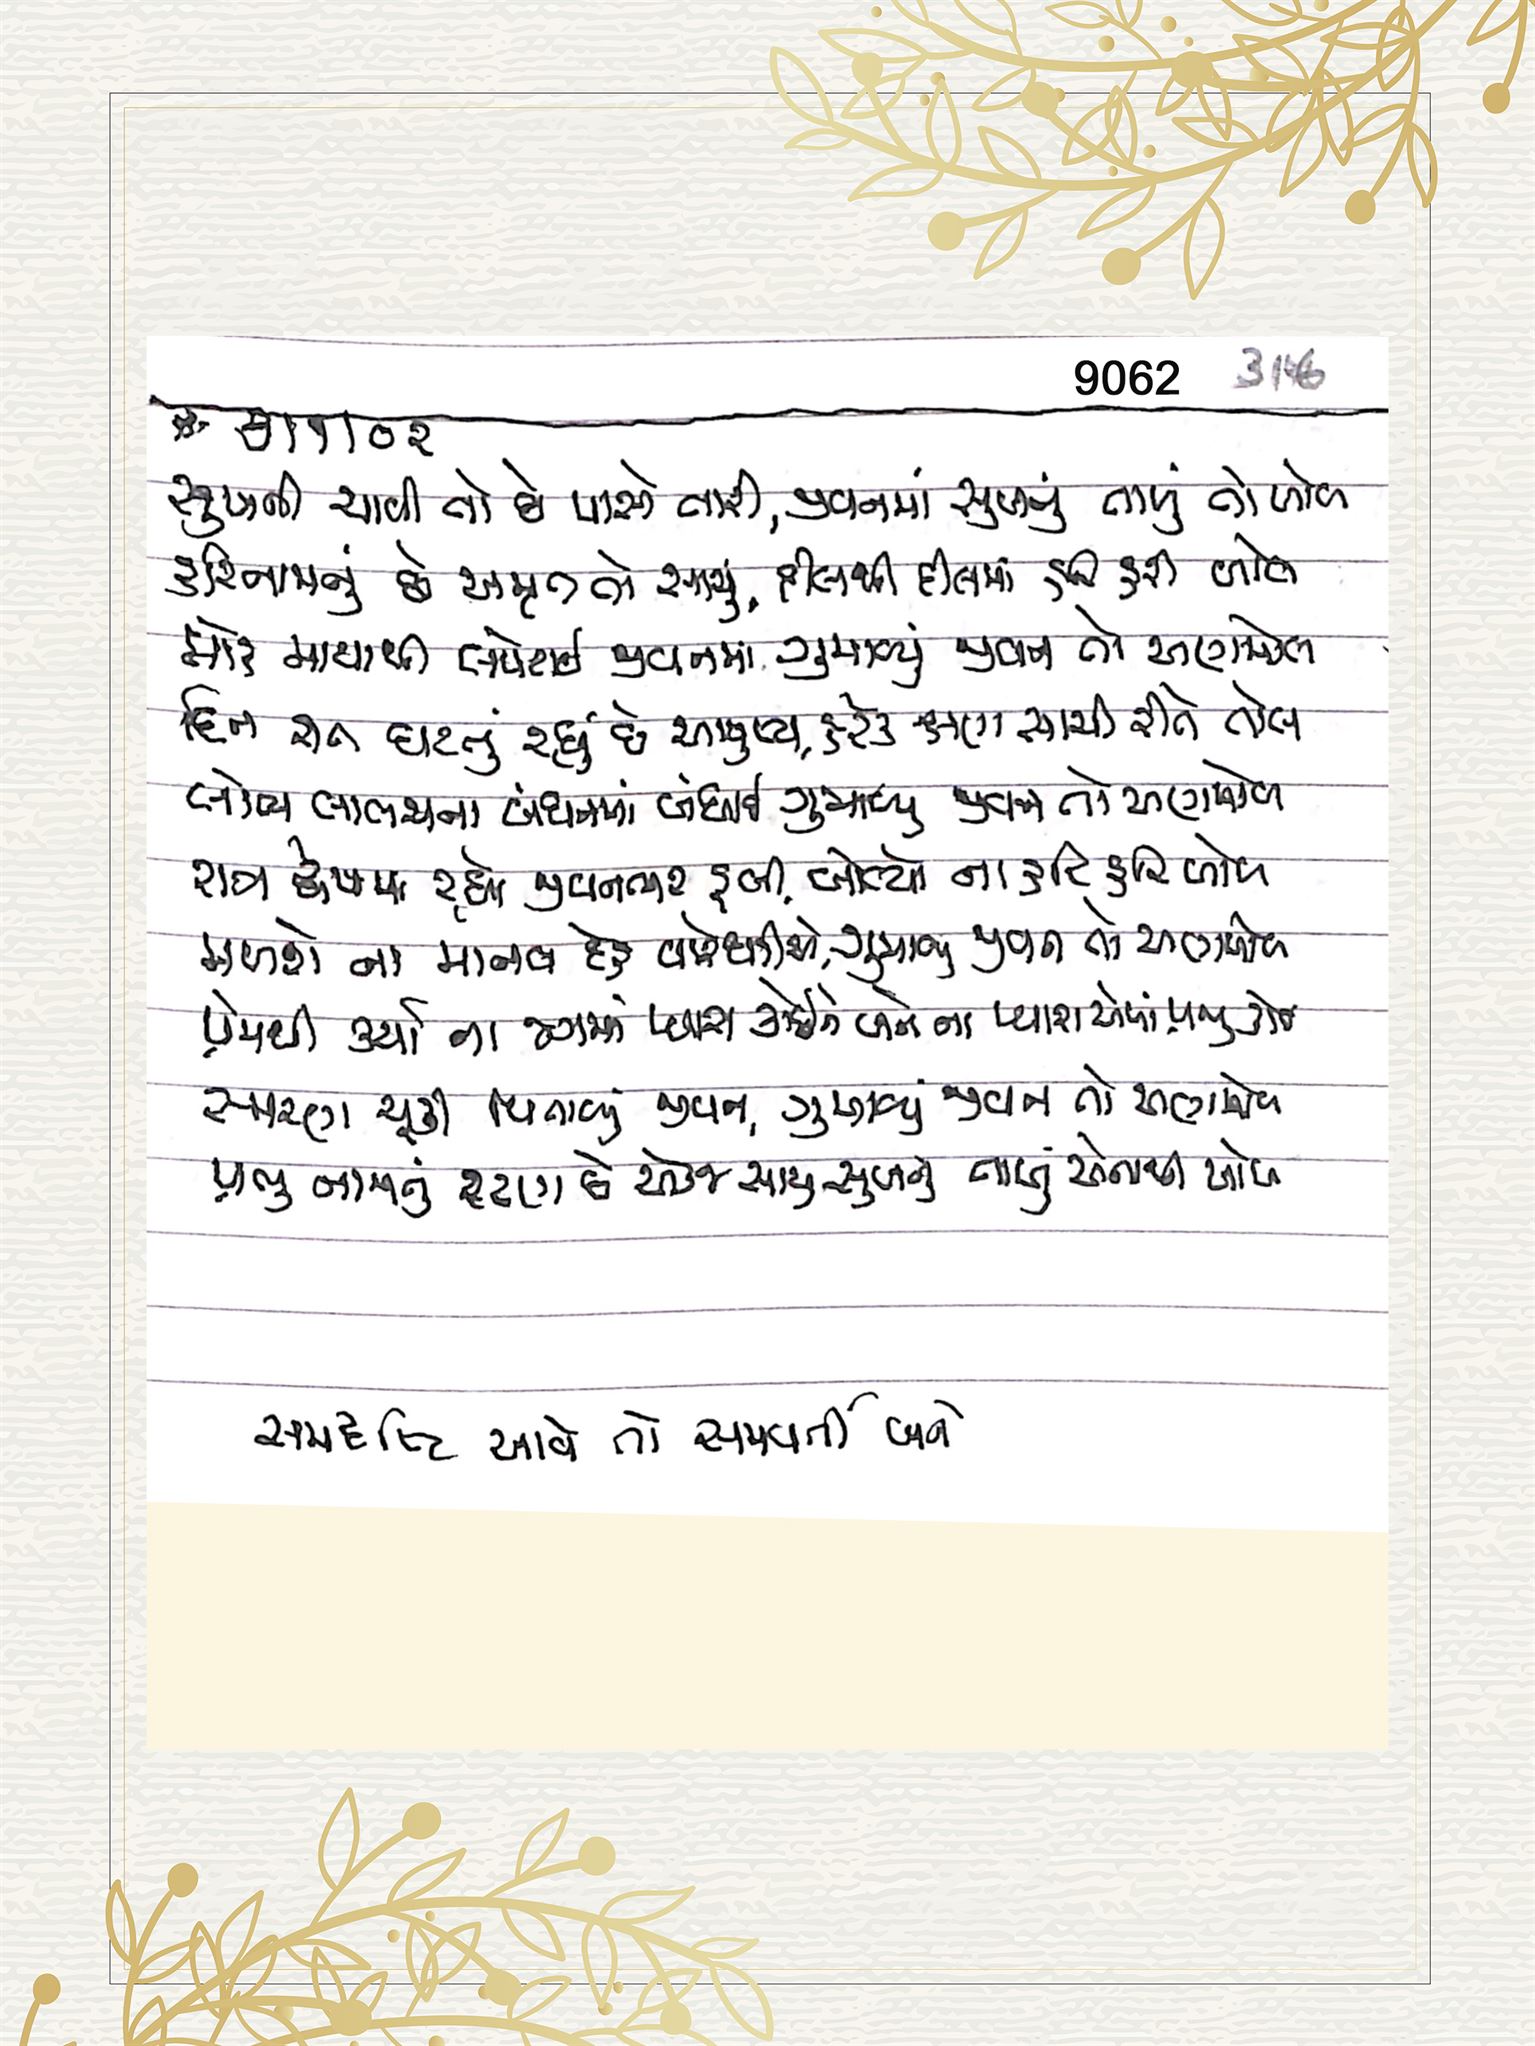 9062 3146
૭/૧/૦૨
સુખની ચાવી તો છે પાસે તારી, જીવનમાં સુખનું તાળું તો ખોલ
હરિનામનું છે અમૃત તો સાચું, દીલથી દીલમાં હરિ હરી બોલ
મોહ માયાથી લપેટાઈ જીવનમાં ગુમાવ્યું જીવન તો અણમોલ
દિન રાત ઘટતું રહ્યું છે આયુષ્ય, હરેક ક્ષણ સાચી રીતે તોલ
લોભ લાલચના બંધનમાં બંધાઈ ગુમાવ્યુ જીવન તો અણમોલ
રાગ દ્વેષમાં રહ્યો જીવનભર ડૂબી, બોલ્યો ના હરિ હરિ બોલ
મળશે ના માનવ દેહ ઘડીએ, ગુમાવ્યુ જીવન તો અણમોલ
પ્રેમથી કર્યો ના જગમાં પ્યાર કોઈને બને ના પ્યારા એમાં પ્રભુ કોઈ
સ્મરણ ચૂકી વિતાવ્યું જીવન, ગુમાવ્યું જીવન તો અણમોલ
પ્રભુ નામનું રટણ છે એકજ સાચુ સુખનું તાળું એનાથી ખોલ
સમદૃષ્ટિ આવે તો સમવર્તી બને